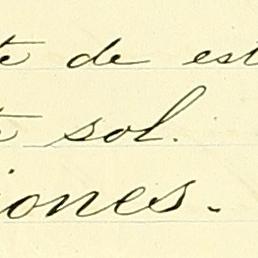 te de est
te sol.
iones.